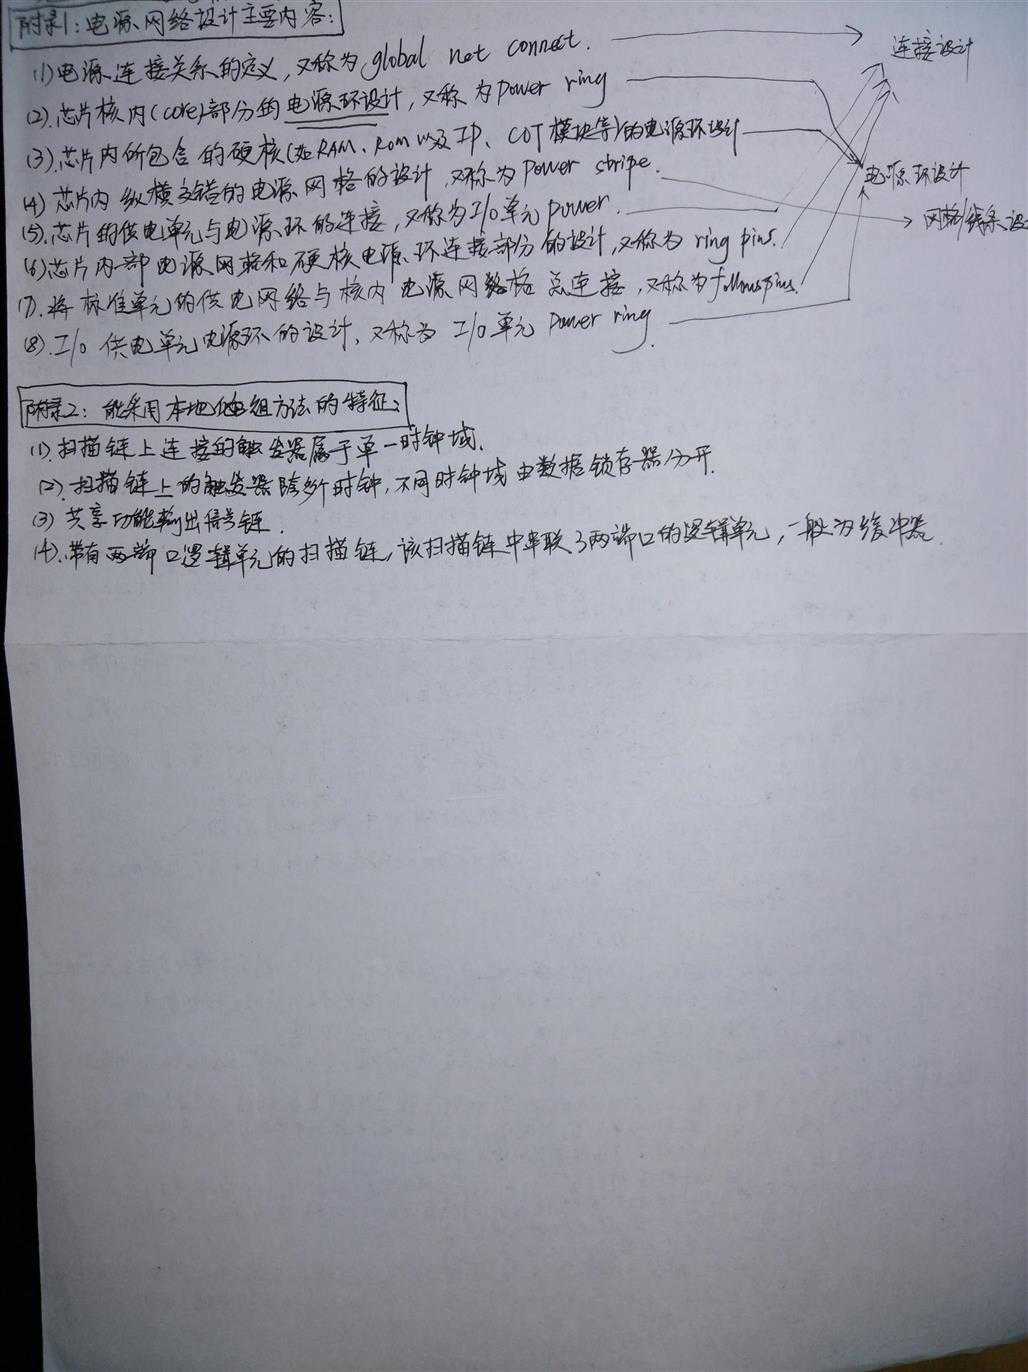 附录1:电源网络设计主要内容:
(1)电源连接关系的定义,又称为global net connect. 连接设计
(2).芯片核内(core)部分的电源环设计,又称为power ring
(3).芯片内所包含的硬核(如RAM、ROM以及IP、COT模块等)的电源环设计
电源环设计
(4).芯片内纵横交错的电源网格的设计,又称为power stripe. 网格/线条设
(5).芯片的供电单元与电源环的连接,又称为I/O单元power.
(6)芯片内部电源网格和硬核电源环连接部分的设计,又称为ring pins.
(7).将标准单元的供电网络与核内电源网络格总连接,又称为followpins.
(8).I/O供电单元电源环的设计,又称为I/O单元power ring.
附录2:能采用本地化重组方法的特征:
(1).扫描链上连接的触发器属于单一时钟域.
(2).扫描链上的触发器除多个时钟,不同时钟域由数据锁存器分开.
(3)共享功能输出信号链.
(4).带有两端口逻辑单元的扫描链,该扫描链中串联了两端口的逻辑单元,一般为缓冲器.